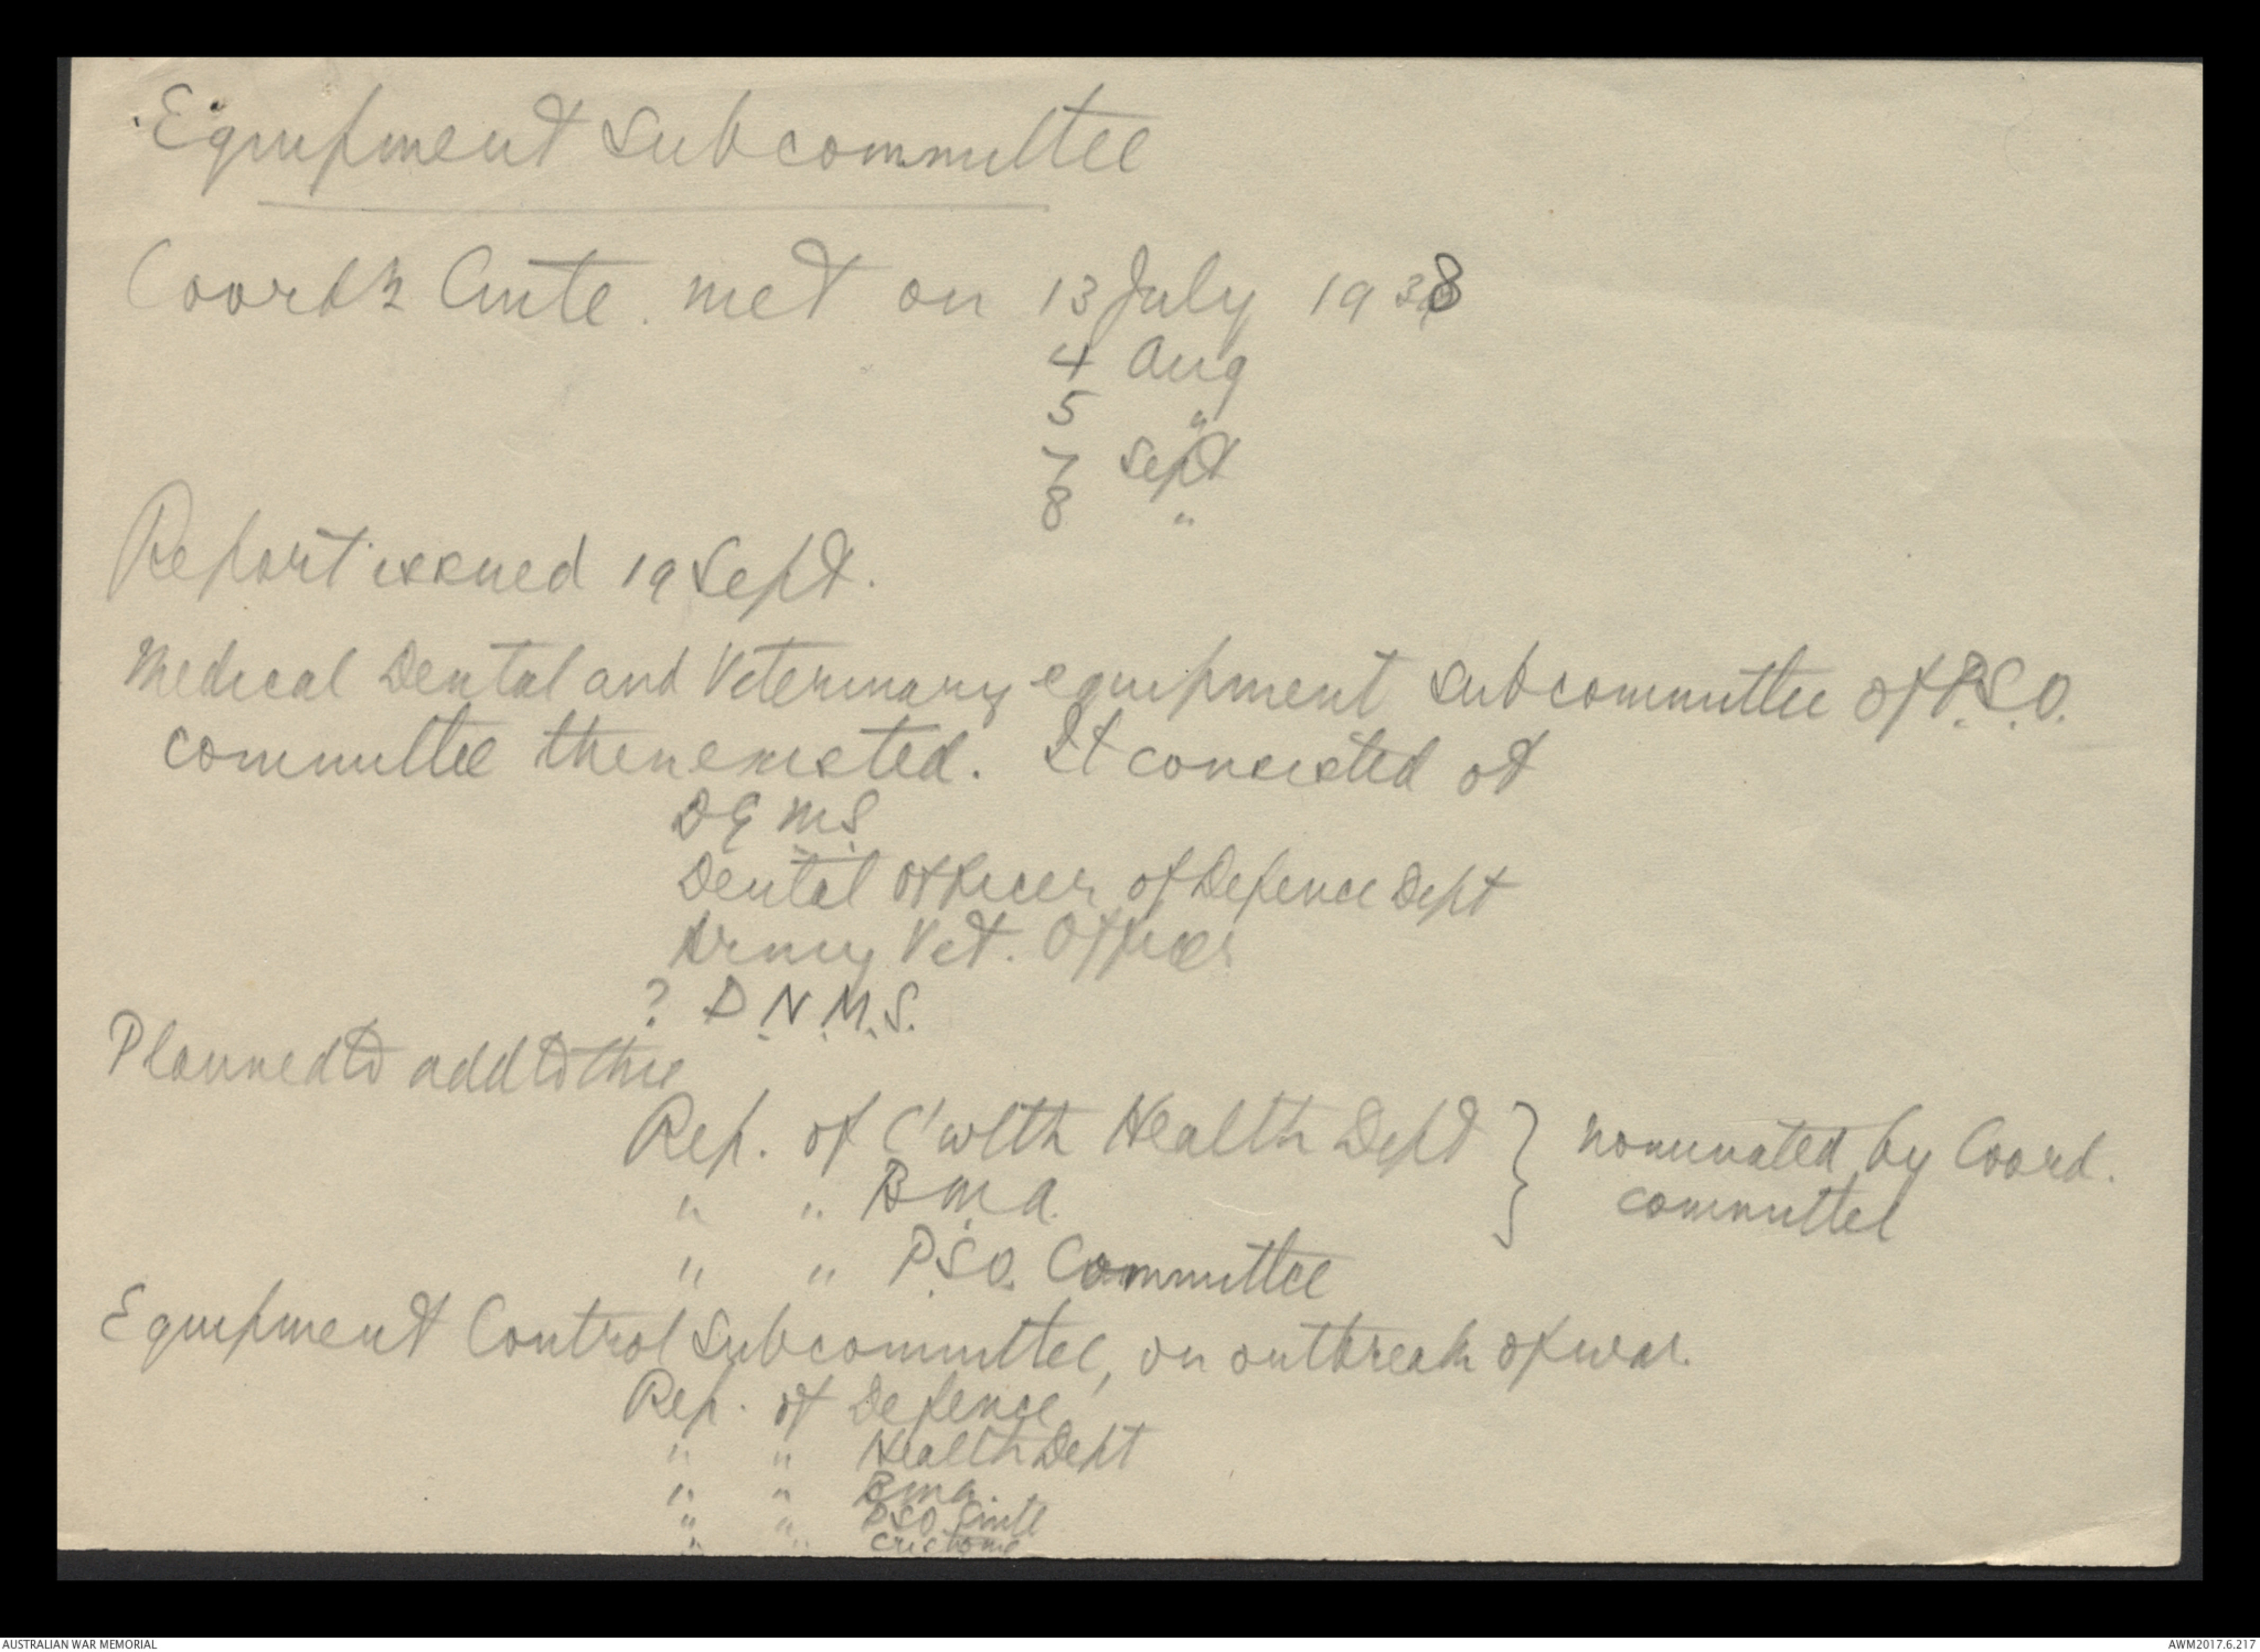 Equipment Subcommittee
Coordn Cmte. met on 13 July 1938
4 Aug
5 "
7 Sept
8 "
Report issued 19 Sept.
Medical Dental and Veterinary equipment subcommittee of P.S.O.
committee then existed. It consisted of
DGMS.
Dental Officer of Defence Dept
Army Vet. Officer
? D.N.M.S.
Planned to add to this
Rep. of C'wlth Health Dept } nominated by Coord.
" " B.M.A. committee
" " P.S.O. Committee
Equipment Control Subcommittee, on outbreak of war.
Rep. of Defence
" " Health Dept
" " BMA.
" " PSO Cmte
" " Customs
AUSTRALIAN WAR MEMORIAL
AWM2017.6.217